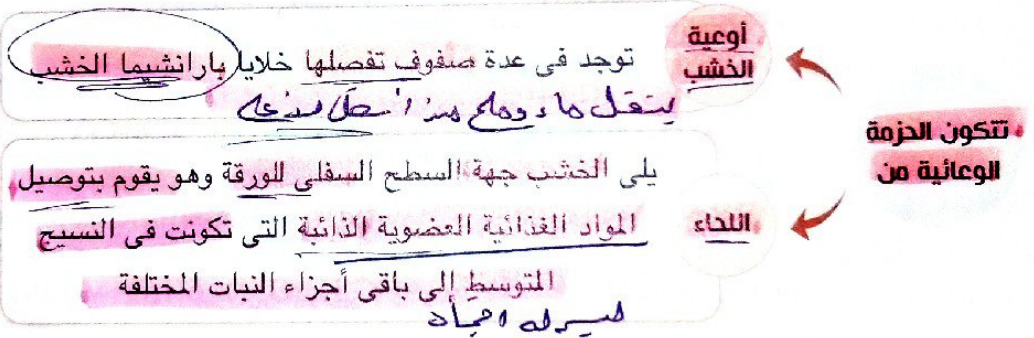 تتكون الحزمة
الوعائية من
أوعية
الخشب
توجد فى عدة صفوف تفصلها خلايا بارانشيما الخشب
بينقل ماء وملح من أسفل لأعلى
اللحاء
يلى الخشب جهة السطح السفلى للورقة وهو يقوم بتوصيل
المواد الغذائية العضوية الذائبة التى تكونت فى النسيج
المتوسط إلى باقى أجزاء النبات المختلفة